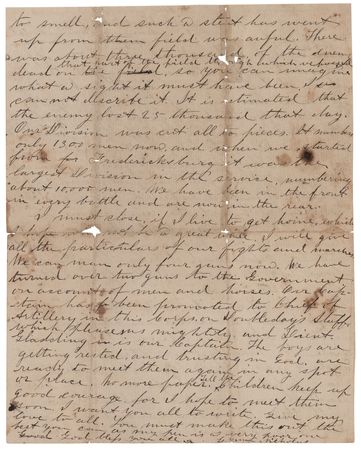 to smell, and such a stent has went
up from them field was awful. There
was about three thousand of the enemy
that part of the field through which we passed
dead on the field so you can imagine
what a sight it must have been I
can not describe it. It is estimated that
the enemy lost 25 thousand that day.
Our Division was cut all to pieces. It numbers
only 1305 men now, and when we started
from for Fredericksburg it was the
largest Division in the service, numbering
about 10,000 men. We have been in the front
in every battle and are now in the rear.
I must close, if I live to get home, which
I hope will be a great , I will give
all the particulars of our fights and marches
We can man only four guns now. We have
turned over two guns to the Government
on account of men and horses. Our Cap-
tain has been promoted to Chief of
Artillery in this Corps, on Doubledays Staff,
which pleases us mightily and Lieut.
is our Captain. The boys are
getting rested, and trusting in God, are
ready to meet them again in any spot
or place no more paper. tell the children keep up
good courage for I hope to meet them
soon. I want you all to write, give my
love to all. You must make this out the
best you can as my pen is very poor, our
Good God bless you all